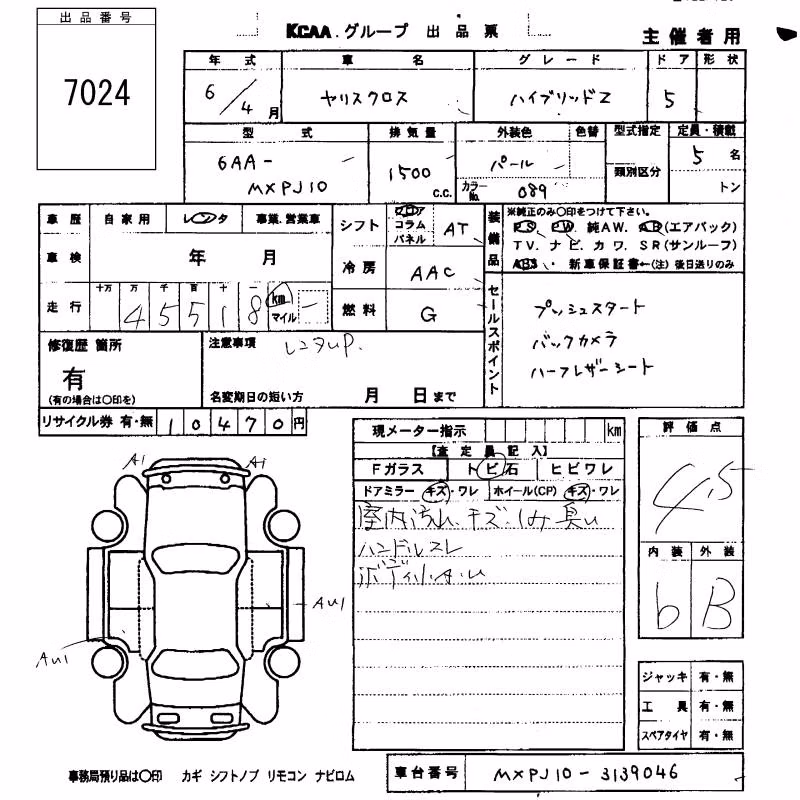 出品番号
7024
KCAA.グループ 出品票
主催者用
年式 車名 グレード ドア 形状
6/4月 ヤリスクロス ハイブリッドZ 5
型式 排気量 外装色 色替 型式指定 定員・積載
6AA- 1500 パール 類別区分 5名
MXPJ10 C.C. カラーNo. 089 トン
車歴 自家用 レンタ 事業.営業車
シフト フロア コラム パネル AT
装備品
※純正のみ〇印をつけて下さい。
PS. PW. 純AW. AB(エアバック)
TV. ナビ. カワ. SR(サンルーフ)
ABS. 新車保証書←(注)後日送りのみ
車検 年 月
冷房 AAC
走行 十万 万 千 百 十 一 km マイル
45518
燃料 G
セールスポイント
プッシュスタート
バックカメラ
ハーフレザーシート
修復歴 箇所
有
(有の場合は〇印を)
注意事項 レンタUP.
名変期日の短い方 月 日まで
リサイクル券 有・無 10470円
現メーター指示 km
【査定員記入】
Fガラス トビ石 ヒビワレ
ドアミラー キズ・ワレ ホイール(CP) キズ・ワレ
室内汚れ.キズ.しみ 臭い
ハンドルスレ
ボディ小キズ
評価点
4.5
内装 外装
b B
A1 A1
AU1
AU1
ジャッキ 有・無
工具 有・無
スペアタイヤ 有・無
事務局預り品は〇印 カギ シフトノブ リモコン ナビロム
車台番号 MXPJ10-3139046